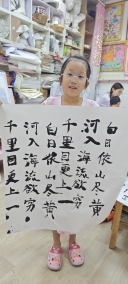 白日依山尽黄
河入海流欲穷
千里目更上一
白日依山尽黄
河入海流欲穷
千里目更上一